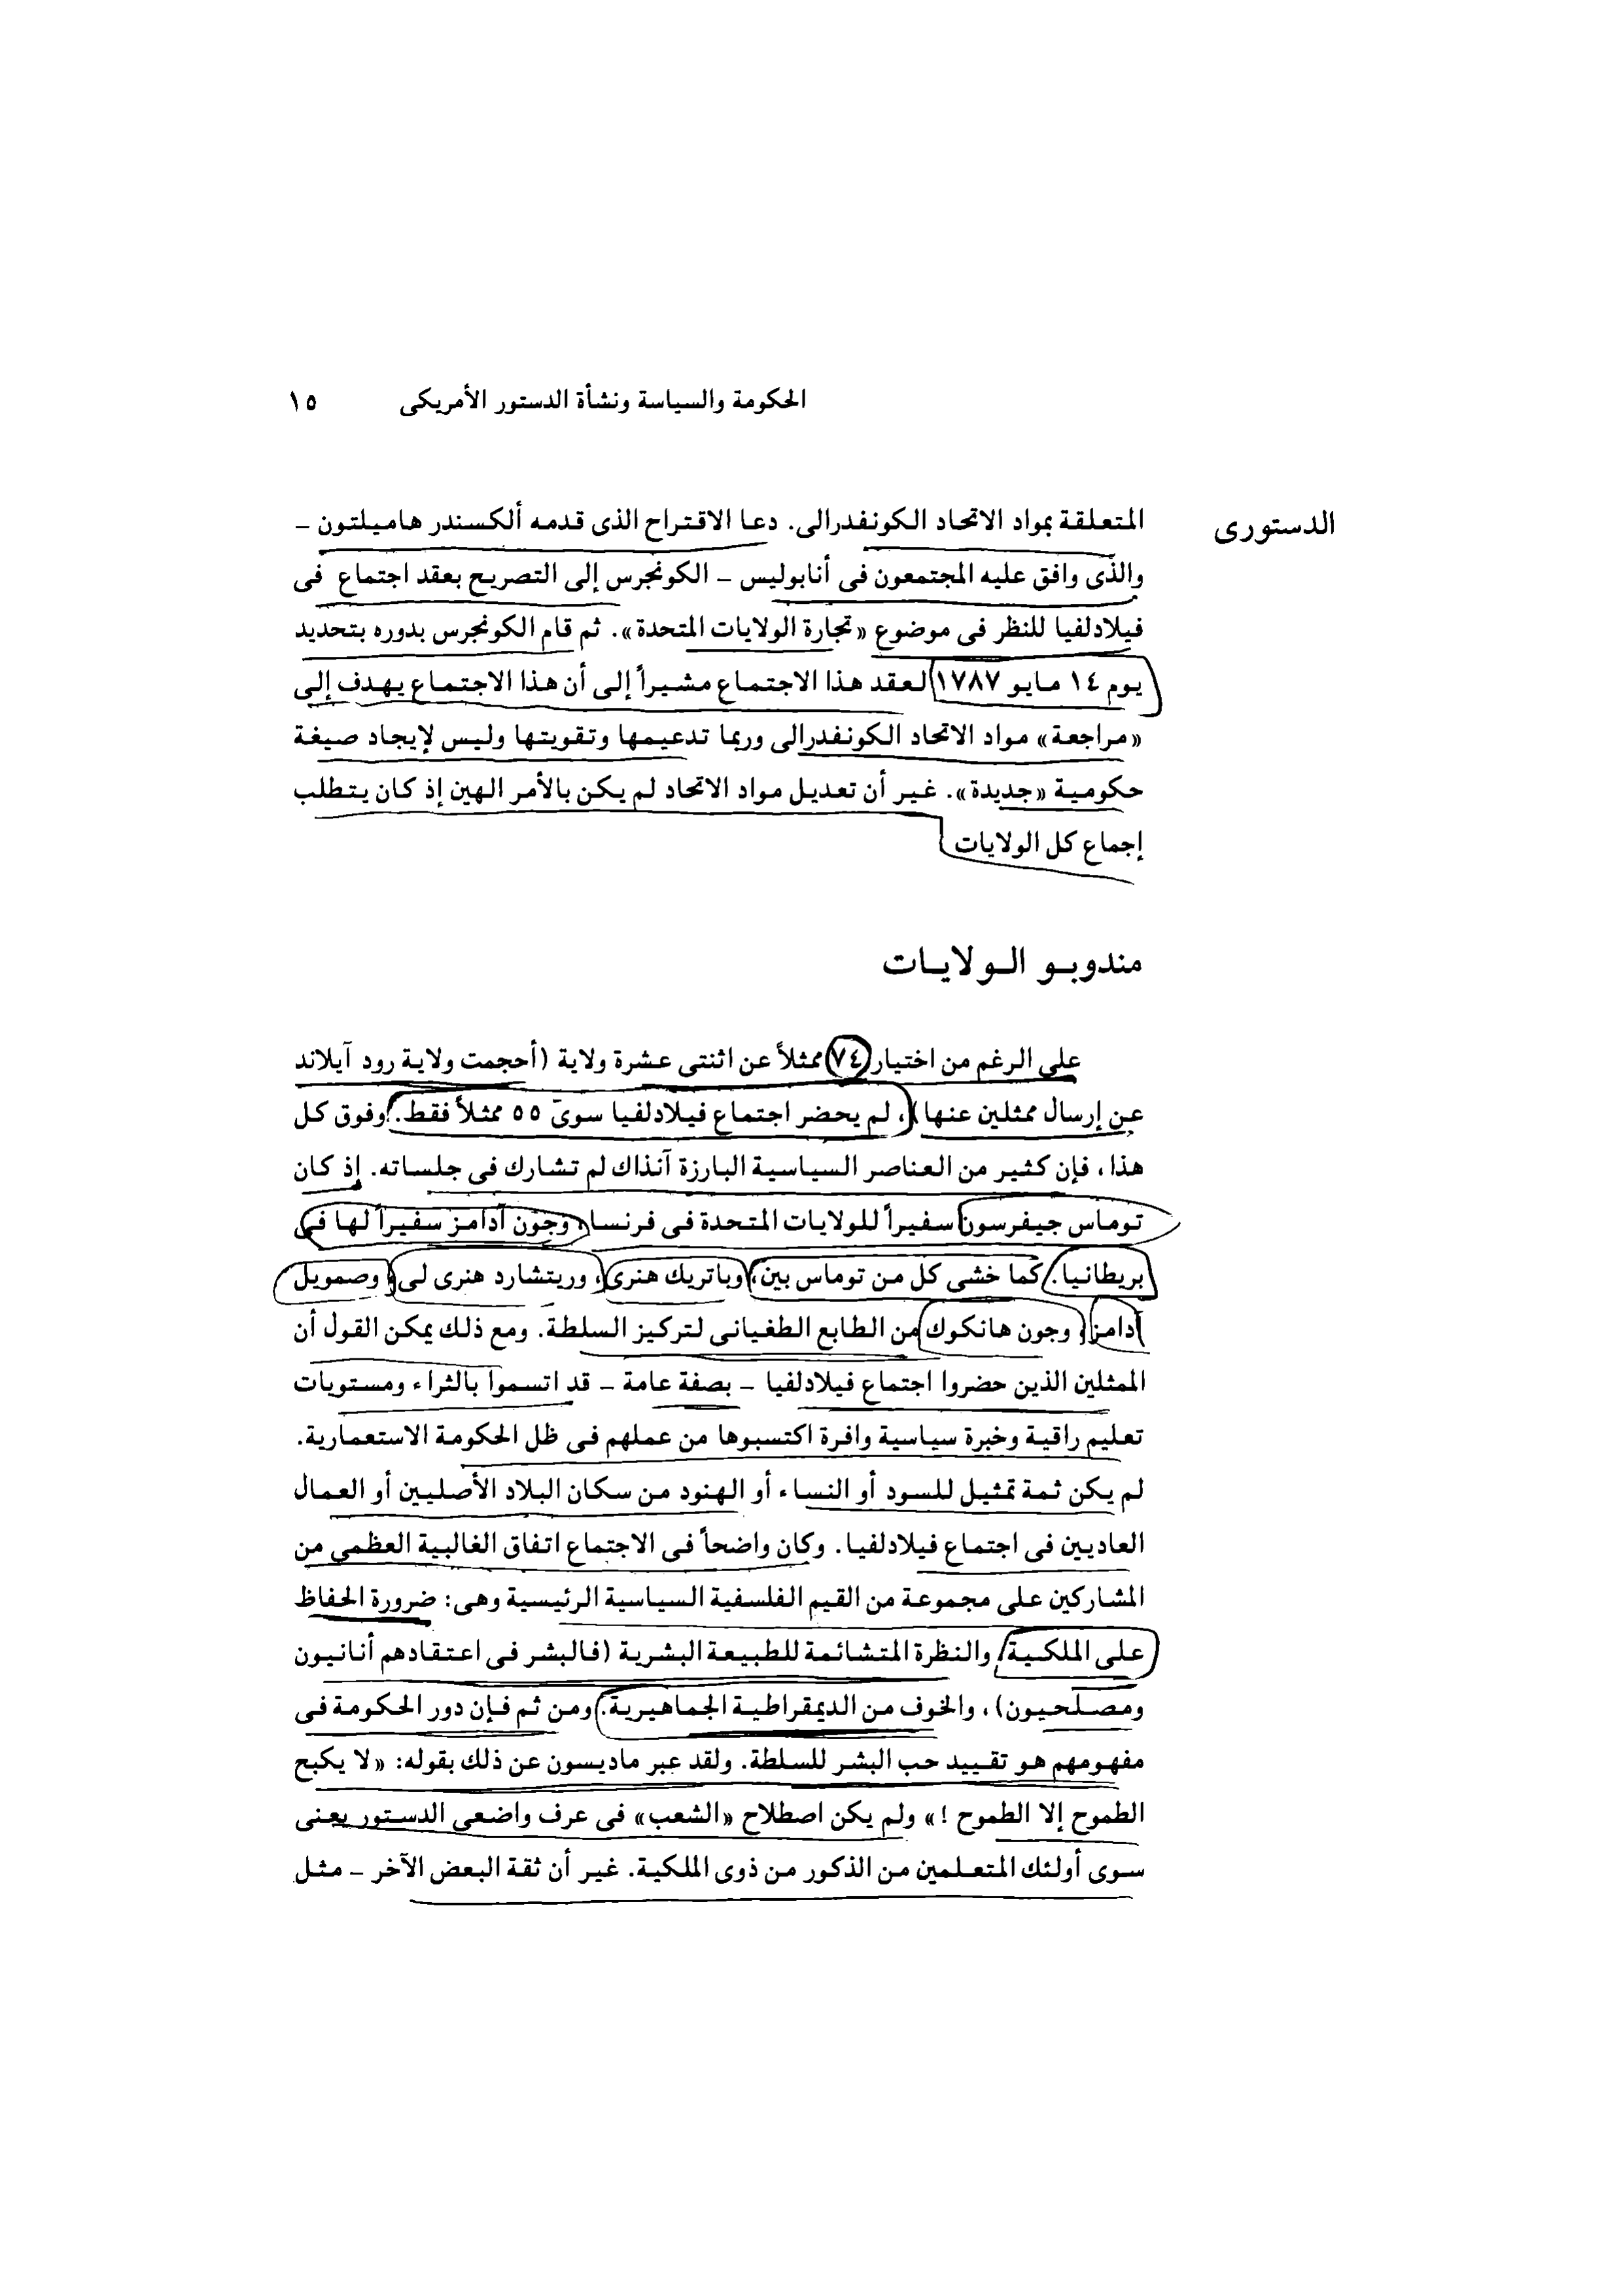 الحكومة والسياسة ونشأة الدستور الأمريكى ١٥
الدستورى
المتعلقة بمواد الاتحاد الكونفدرالى. دعا الاقتراح الذى قدمه ألكسندر هاميلتون –
والذى وافق عليه المجتمعون فى أنابوليس – الكونجرس إلى التصريح بعقد اجتماع فى
فيلادلفيا للنظر فى موضوع «تجارة الولايات المتحدة». ثم قام الكونجرس بدوره بتحديد
يوم ١٤ مايو ١٧٨٧ لعقد هذا الاجتماع مشيراً إلى أن هذا الاجتماع يهدف إلى
«مراجعة» مواد الاتحاد الكونفدرالى وربما تدعيمها وتقويتها وليس لإيجاد صيغة
حكومية «جديدة». غير أن تعديل مواد الاتحاد لم يكن بالأمر الهين إذ كان يتطلب
إجماع كل الولايات
مندوبو الولايات
على الرغم من اختيار ٧٤ ممثلاً عن اثنتى عشرة ولاية (أحجمت ولاية رود آيلاند
عن إرسال ممثلين عنها)، لم يحضر اجتماع فيلادلفيا سوى ٥٥ ممثلاً فقط. وفوق كل
هذا، فإن كثير من العناصر السياسية البارزة آنذاك لم تشارك فى جلساته. إذ كان
توماس جيفرسون سفيراً للولايات المتحدة فى فرنسا، وجون آدامز سفيراً لها فى
بريطانيا. كما خشى كل من توماس بين، وباتريك هنرى، وريتشارد هنرى لى، وصمويل
آدامز، وجون هانكوك من الطابع الطغيانى لتركيز السلطة. ومع ذلك يمكن القول أن
الممثلين الذين حضروا اجتماع فيلادلفيا – بصفة عامة – قد اتسموا بالثراء ومستويات
تعليم راقية وخبرة سياسية وافرة اكتسبوها من عملهم فى ظل الحكومة الاستعمارية.
لم يكن ثمة تمثيل للسود أو النساء أو الهنود من سكان البلاد الأصليين أو العمال
العاديين فى اجتماع فيلادلفيا. وكان واضحاً فى الاجتماع اتفاق الغالبية العظمى من
المشاركين على مجموعة من القيم الفلسفية السياسية الرئيسية وهى: ضرورة الحفاظ
على الملكية، والنظرة المتشائمة للطبيعة البشرية (فالبشر فى اعتقادهم أنانيون
ومصلحيون)، والخوف من الديمقراطية الجماهيرية. ومن ثم فإن دور الحكومة فى
مفهومهم هو تقييد حب البشر للسلطة. ولقد عبر ماديسون عن ذلك بقوله: «لا يكبح
الطموح إلا الطموح !» ولم يكن اصطلاح «الشعب» فى عرف واضعى الدستور يعنى
سوى أولئك المتعلمين من الذكور من ذوى الملكية. غير أن ثقة البعض الآخر – مثل